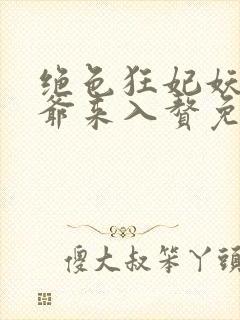 绝色狂妃妖
爷来入赘免
傻大叔笨丫頭